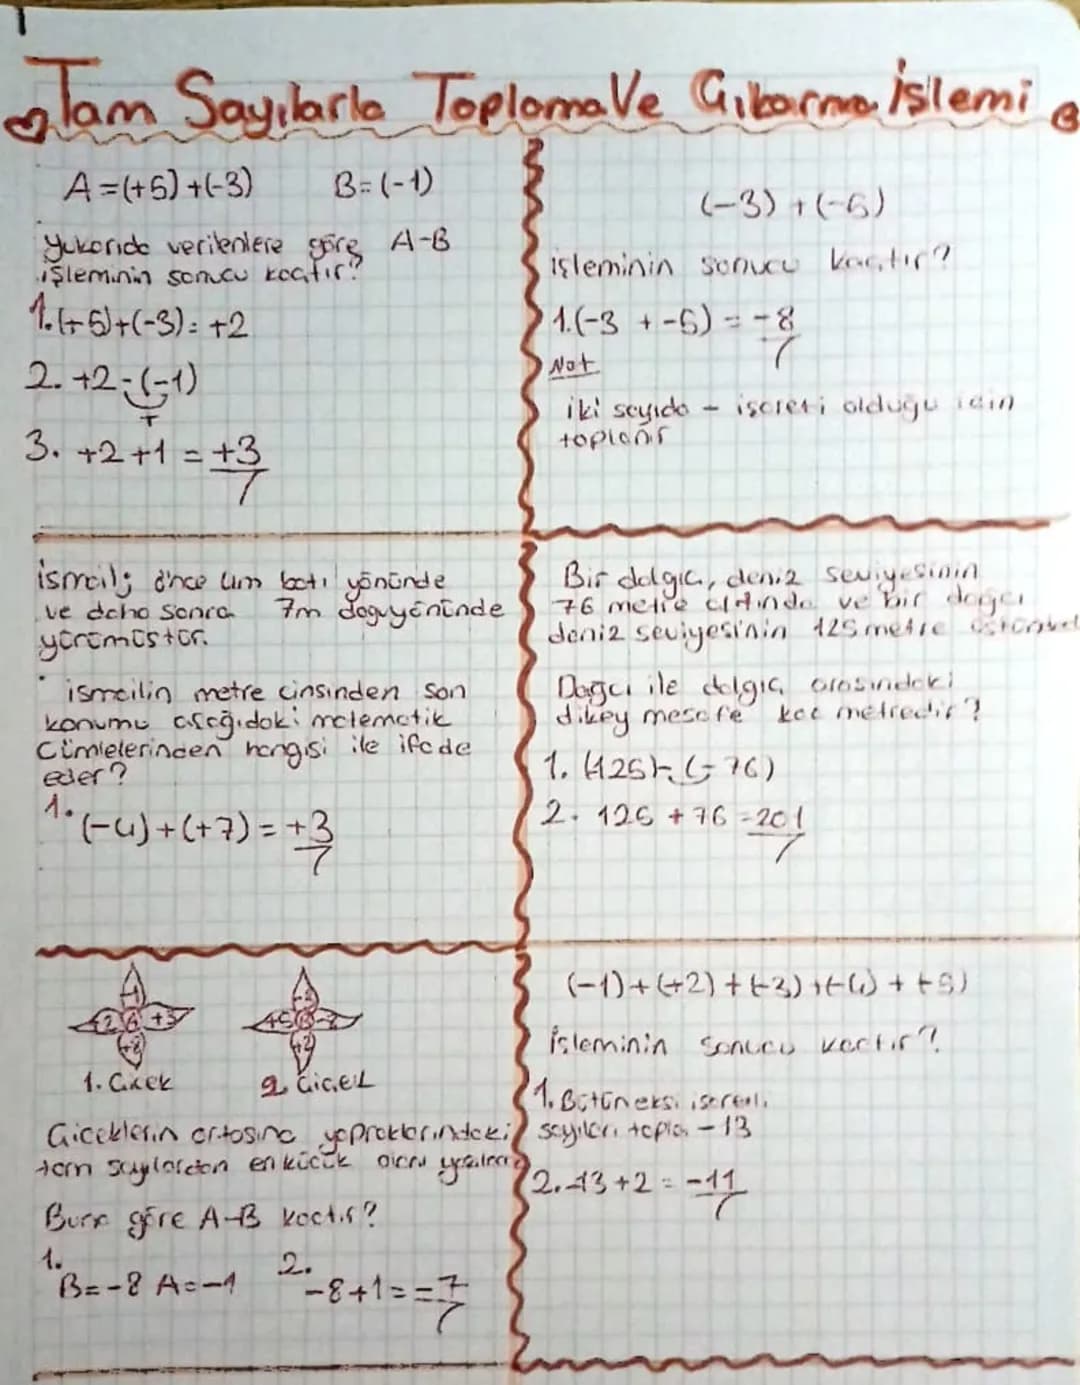 Tam Sayılarla Toplama Ve Çıkarma İşlemi
A=(+5)+(-3) B=(-1)
Yukarıda verilenlere göre A-B
işleminin sonucu kaçtır?
1.(+5)+(-3)= +2
2. +2-(-1)
+
3. +2+1 = +3
(-3) + (-5)
işleminin sonucu kaçtır?
1.(-3 + -5) = -8
Not
iki sayıda - işareti olduğu için
toplanır
ismail; önce 4m batı yönünde
ve daha sonra 7m doğu yönünde
yürümüştür.
ismailin metre cinsinden son
konumu aşağıdaki matematik
Cümlelerinden hangisi ile ifade
eder?
1. (-4)+(+7) = +3
Bir dalgıç, deniz seviyesinin
76 metre altında ve bir dağcı
deniz seviyesinin 125 metre
Dağcı ile dalgıç arasındaki
dikey mesafe kaç metredir?
1. (+125)-(-76)
2. 125 + 76 = 201
-1
+2 A +3
+8
+5 B
+2
1. Çiçek 2. Çiçek
Çiçeklerin ortasına yapraklarındaki
tam sayılardan en küçük olanı
Buna göre A-B kaçtır?
1. B=-8 A=-1
2. -8+1= -7
(-1)+(+2)+(-3)+(-4)+(-5)
İşleminin sonucu kaçtır?
1. Bütün eksi işaretli
sayıları topla -13
2. -13+2 = -11